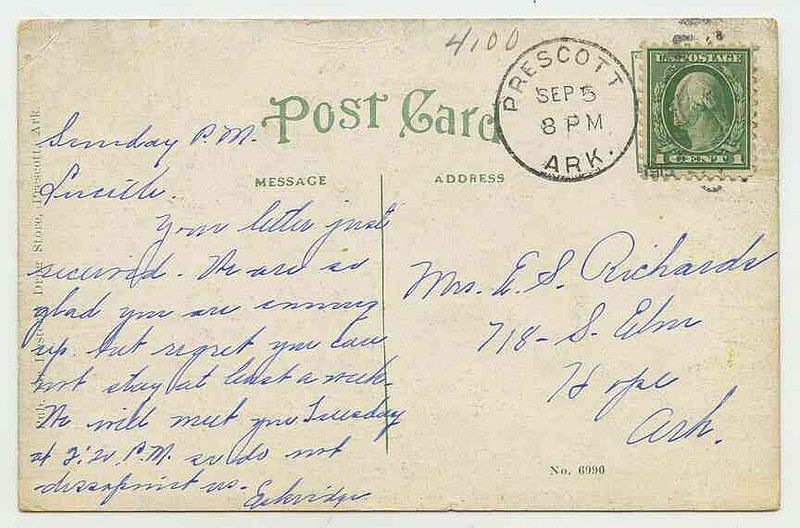 4.00
PRESCOTT
SEP 5
8 PM
ARK.
U.S. POSTAGE
1 CENT 1
Post Card
MESSAGE
ADDRESS
Sunday P.M.
Lucille.
Your letter just
received. We are so
glad you are coming
up. but regret you can
not stay at least a week.
We will meet you Tuesday
at P.M. so do not
dissapoint us.
Mrs. E. S. Richards
718 - S. Elm
Hope
Ark.
No. 6990
Drug Store, Prescott, Ark.